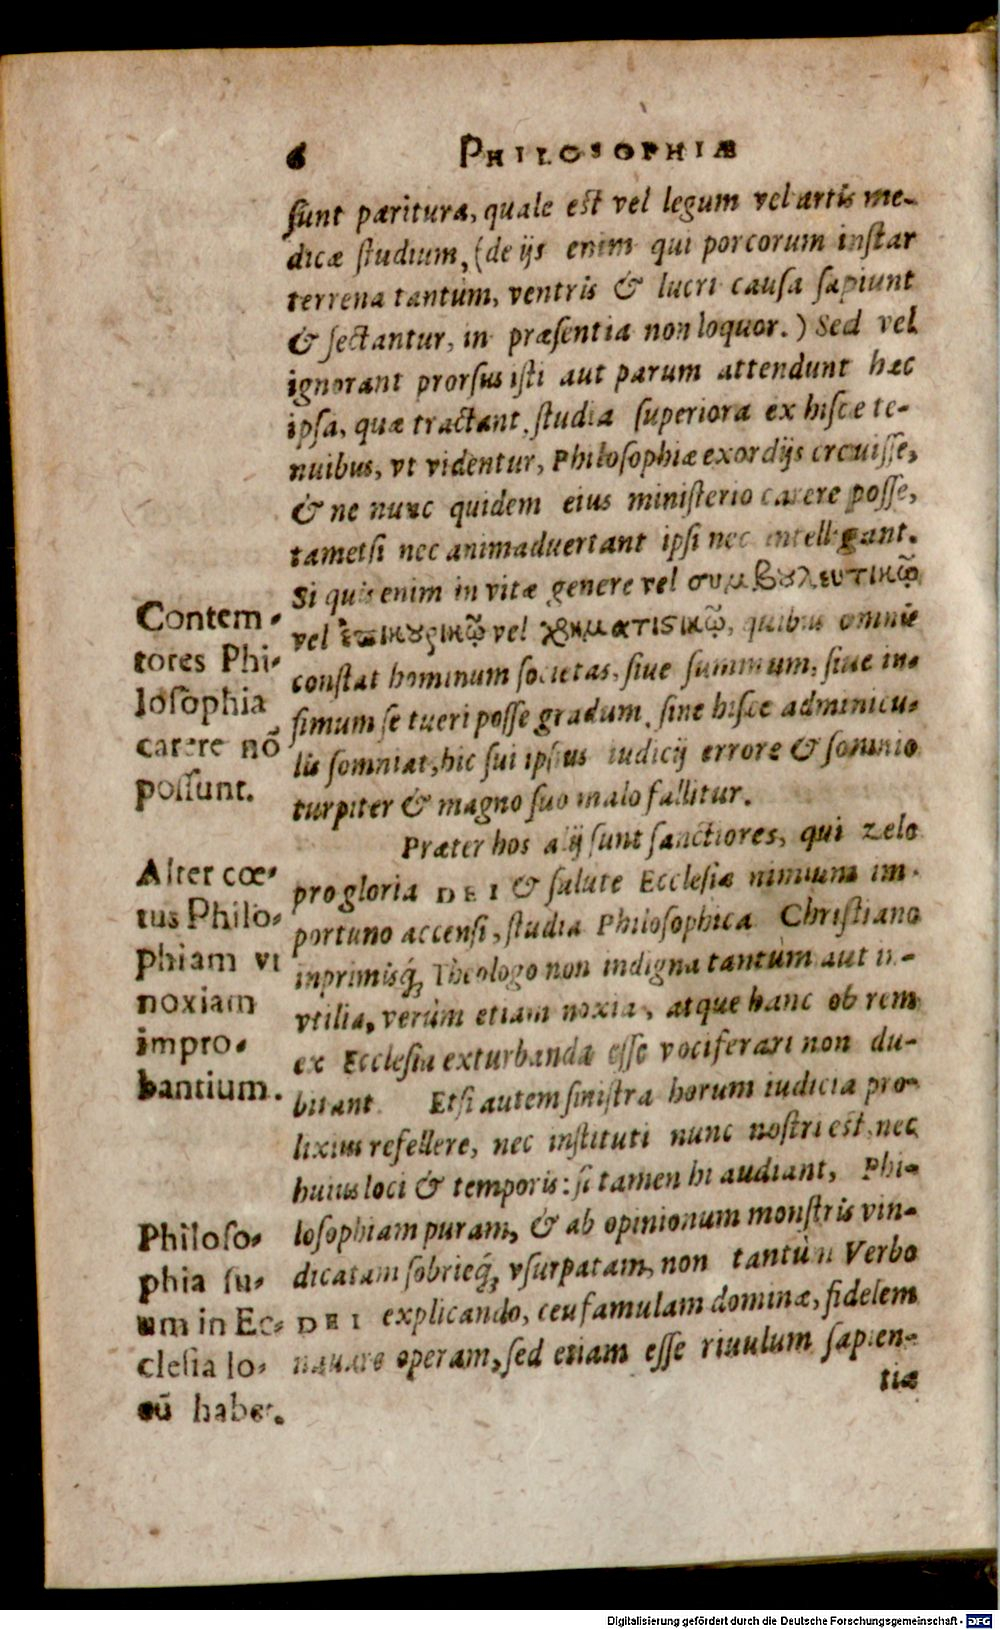 6 PHILOSOPHIÆ
ſunt pæritura, quale est vel legum vel artis me-
dicæ ſtudium, (de ijs enim qui porcorum inſtar
terrena tantùm, ventris & lucri cauſa ſapiunt
& ſectantur, in præſentia non loquor.) Sed vel
ignorant prorſus iſti aut parum attendunt hæc
ipſa, quæ tractant, ſtudia ſuperiora ex hiſce te-
nuibus, vt videntur, Philoſophiæ exordijs creuiſſe,
& ne nunc quidem eius miniſterio carere poſſe,
tametſi nec animaduertant ipſi nec intelligant.
Si quis enim in vitæ genere vel συμβȣλευτικῷ
vel ἐπικȣρικῷ vel χρηματιστικῷ, quibus omnis
conſtat hominum ſocietas, ſiue ſummum, ſiue in-
ſimum ſe tueri poſſe gradum, ſine hiſce adminicu-
lis ſomniat, hic ſui ipſius iudicij errore & ſomnio
turpiter & magno ſuo malo fallitur.
Contem-
tores Phi-
loſophia
carere nō
poſſunt.
Præter hos alij ſunt ſanctiores, qui zelo
pro gloria DEI & ſalute Eccleſiæ nimium im-
portuno accenſi, ſtudia Philoſophica Chriſtiano
inprimisq́; Theologo non indigna tantùm aut in-
vtilia, verùm etiam noxia, atque hanc ob rem
ex Eccleſia exturbanda eſſe vociferari non du-
bitant. Etſi autem ſiniſtra horum iudicia pro-
lixius refellere, nec inſtituti nunc noſtri est, nec
huius loci & temporis: ſi tamen hi audiant, Phi-
loſophiam puram, & ab opinionum monſtris vin-
dicatam ſobrieq́; vſurpatam, non tantùm Verbo
DEI explicando, ceu famulam dominæ, fidelem
nauare operam, ſed etiam eſſe riuulum ſapien-
tiæ
Alter cœ-
tus Philo-
phiam vt
noxiam
impro-
bantium.
Philoſo-
phia ſu-
um in Ec-
cleſia lo-
cū habet.
Digitalisierung gefördert durch die Deutsche Forschungsgemeinschaft - DFG